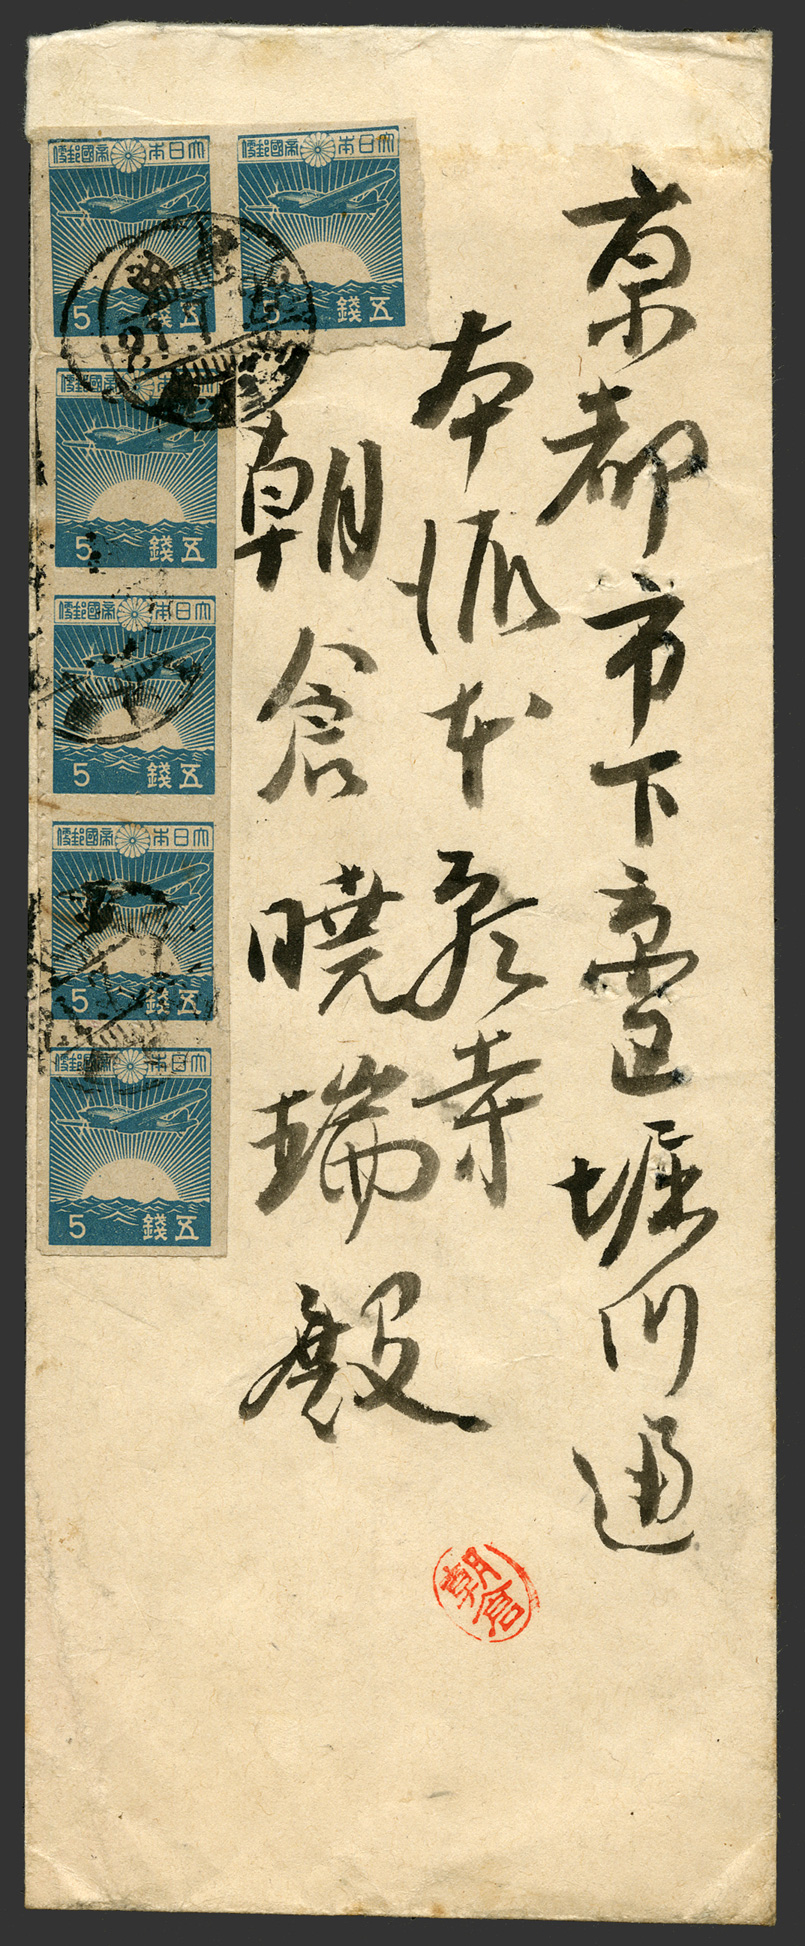 京都市下京区堀川通
本派本願寺
朝倉暁瑞殿
朝倉
大日本帝國郵便
五錢
5
大日本帝國郵便
五錢
5
大日本帝國郵便
五錢
5
大日本帝國郵便
五錢
5
大日本帝國郵便
五錢
5
大日本帝國郵便
五錢
5